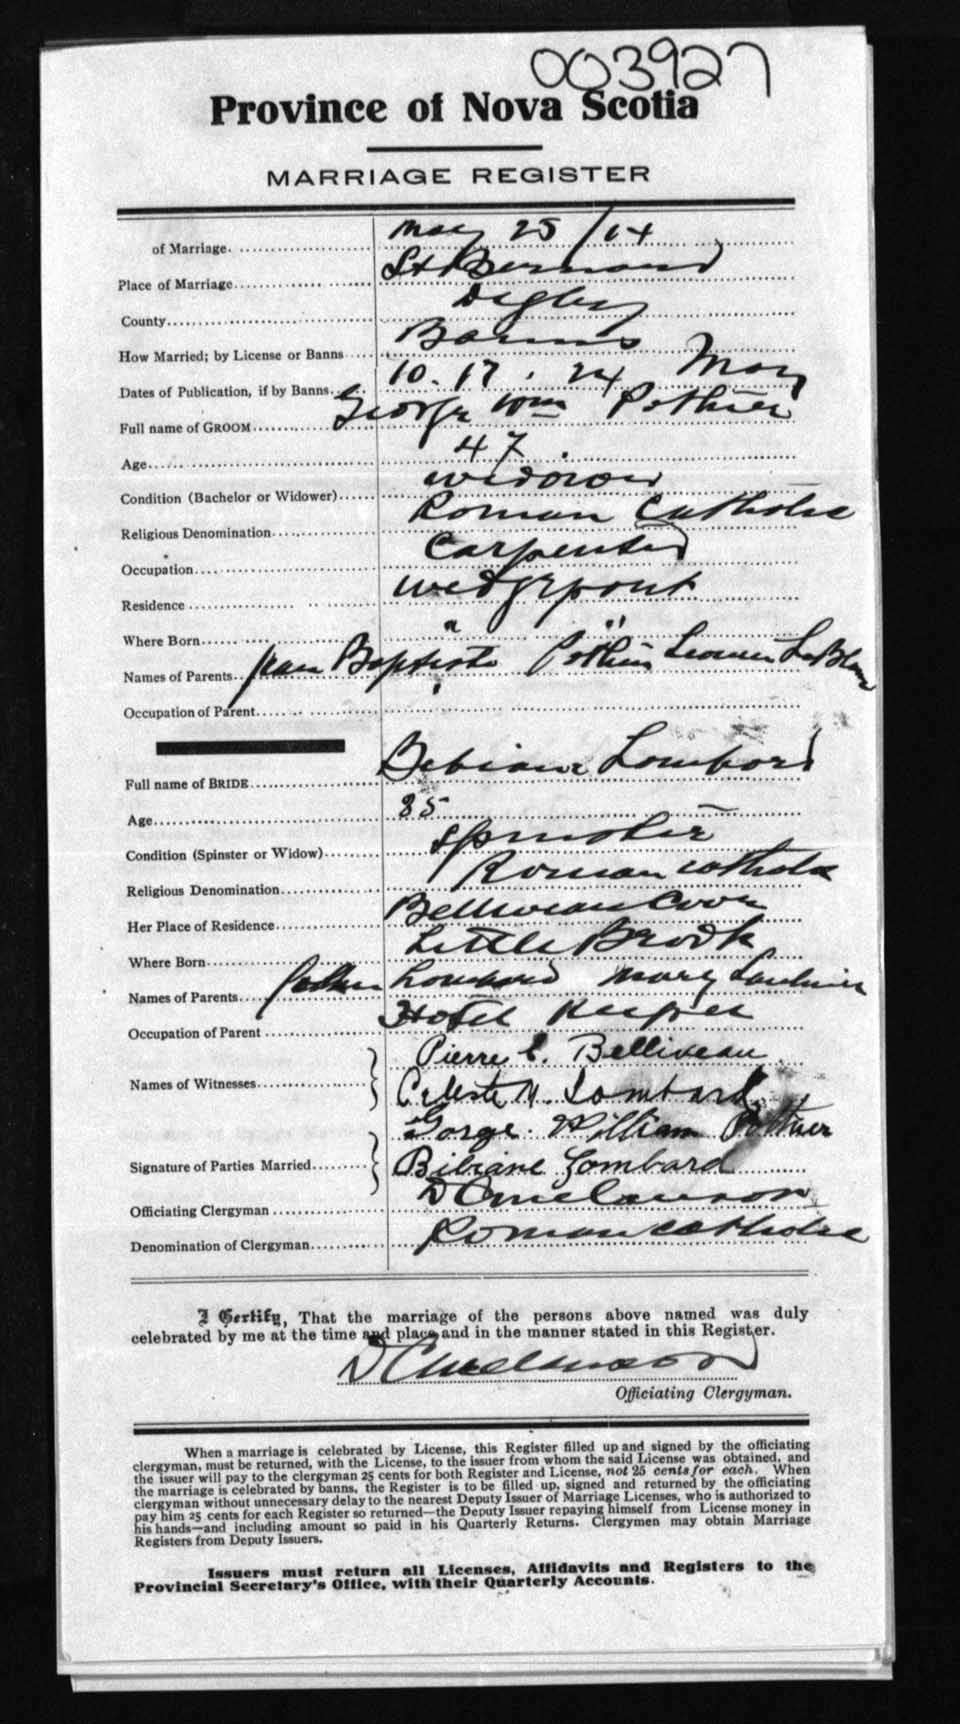 003927
Province of Nova Scotia
MARRIAGE REGISTER
of Marriage. May 25/14
Place of Marriage St Bernard
County Digby
How Married; by License or Banns Banns
Dates of Publication, if by Banns. 10. 17. 24 May
Full name of GROOM George Wm Pothier
Age 47
Condition (Bachelor or Widower) widower
Religious Denomination Roman Catholic
Occupation Carpenter
Residence Wedgeport
Where Born " "
Names of Parents Jean Baptiste Pothier LeBlanc
Occupation of Parent
Full name of BRIDE Bebiane Lombard
Age 35
Condition (Spinster or Widow) Spinster
Religious Denomination Roman Catholic
Her Place of Residence Belliveau Cove
Where Born Little Brook
Names of Parents Lombard Mary
Occupation of Parent Hotel Keeper
Names of Witnesses Pierre C. Belliveau
Celeste M. Lombard
Signature of Parties Married Gorge William Pothier
Bibiane Lombard
Officiating Clergyman D C Melanson
Denomination of Clergyman Roman Catholic
I Certify, That the marriage of the persons above named was duly
celebrated by me at the time and place and in the manner stated in this Register.
D C Melanson
Officiating Clergyman.
When a marriage is celebrated by License, this Register filled up and signed by the officiating
clergyman, must be returned, with the License, to the issuer from whom the said License was obtained, and
the issuer will pay to the clergyman 25 cents for both Register and License, not 25 cents for each. When
the marriage is celebrated by banns, the Register is to be filled up, signed and returned by the officiating
clergyman without unnecessary delay to the nearest Deputy Issuer of Marriage Licenses, who is authorized to
pay him 25 cents for each Register so returned—the Deputy Issuer repaying himself from License money in
his hands—and including amount so paid in his Quarterly Returns. Clergymen may obtain Marriage
Registers from Deputy Issuers.
Issuers must return all Licenses, Affidavits and Registers to the
Provincial Secretary's Office, with their Quarterly Accounts.